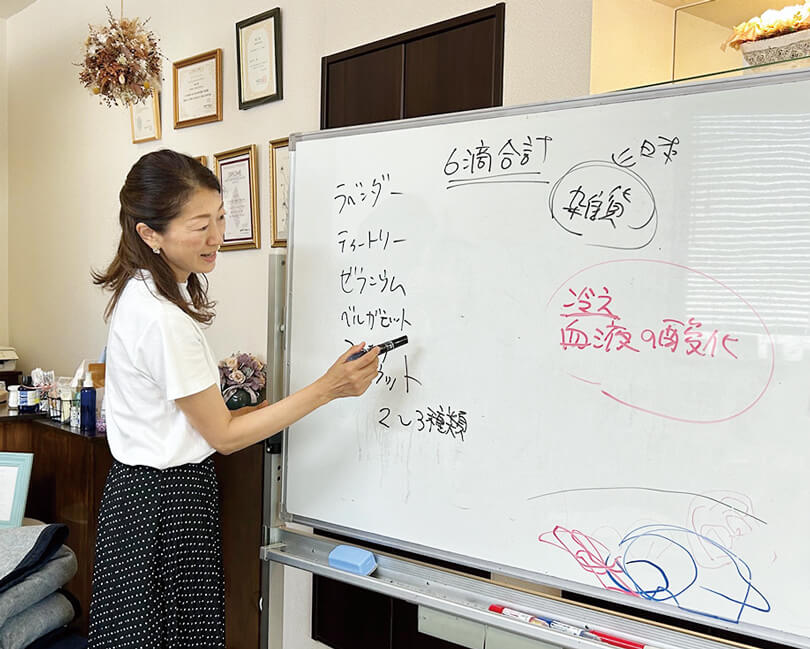 6滴合計
日本
雑貨
ラベンダー
ティートリー
ゼラニウム
ベルガモット
ット
2〜3種類
冷え
血液の酸化